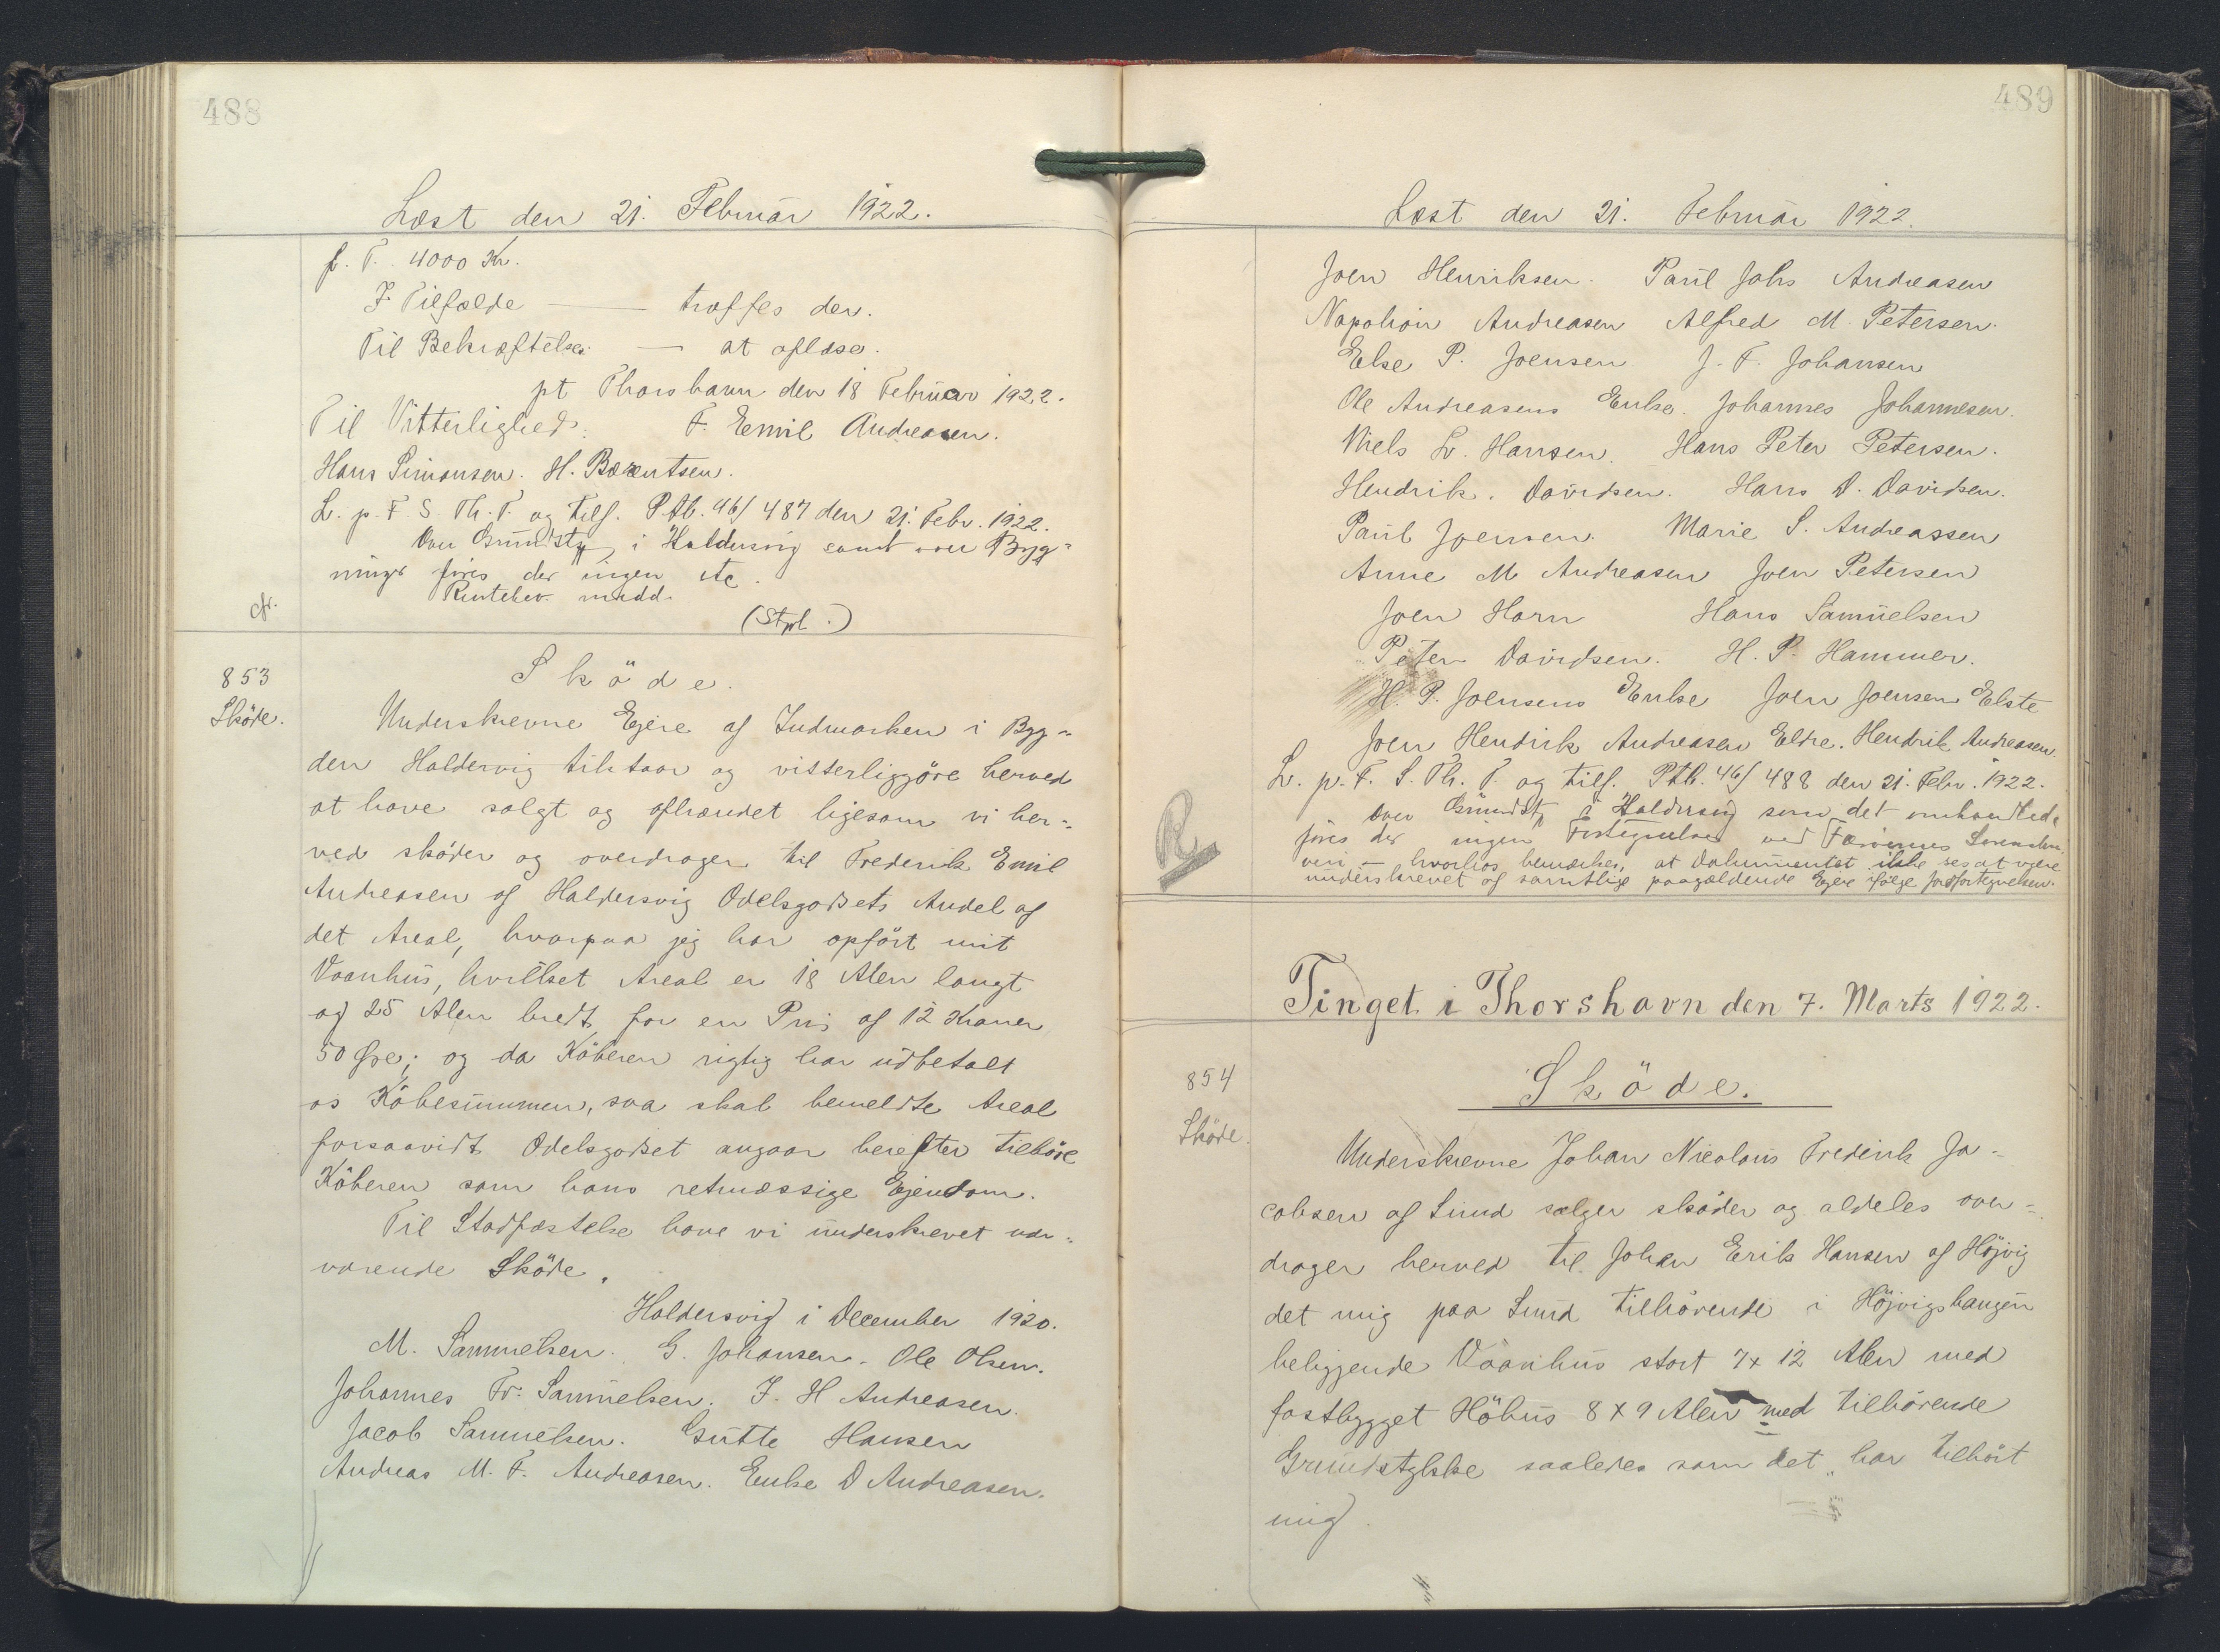 488
Læst den 21. Februar 1922.
f. T. 4000 Kr.
I Tilfælde — træffes der.
Til Bekræftelse — at aflæse.
pt Thorshavn den 18 Februar 1922.
Til Vitterlighed: F. Emil Andreasen.
Hans Simonsen. H. Barentsen.
L. p. F. S. Th. T. og tilf. Ptb. 46/487 den 21. Febr. 1922.
Over Grundst. i Haldersvig samt over Byg-
ninger føres der ingen etc.
Rentebev. medd.
cfr. (Stpl.)
853
Sköde.
Sköde.
Underskrevne Ejere af Indmarken i Byg-
den Haldersvig tilstaar og vitterliggöre herved
at have solgt og afhændet ligesom vi her-
ved sköder og overdrager til Frederik Emil
Andreasen af Haldersvig Odelsgodsets Andel af
det Areal, hvorpaa jeg har opfört mit
Vaanhus, hvilket Areal er 18 Alen langt
og 25 Alen bredt for en Pris af 12 Kroner
50 Øre; og da Köberen rigtig har udbetalt
os Köbesummen, saa skal bemeldte Areal
forsaavidt Odelsgodset angaar herefter tilhöre
Köberen som hans retmæssige Ejendom.
Til Stadfæstelse have vi underskrevet nær-
værende Sköde.
Haldersvig i December 1920.
M. Samuelsen. G. Johansen. Ole Olsen.
Johannes Fr. Samuelsen. J. H Andreasen.
Jacob Samuelsen. Gutte Hansen
Andreas M. F. Andreasen. Enke D Andreasen.
489
Læst den 21. Februar 1922.
Joen Henriksen. Paul Johs Andreasen
Napoleon Andreasen Alfred M. Petersen.
Else P. Joensen J. F. Johansen
Ole Andreasens Enke. Johannes Johannesen.
Niels L. Hansen. Hans Peter Petersen.
Hendrik. Davidsen. Hans D. Davidsen.
Paul Joensen. Marie S. Andreassen
Anne M Andreasen Joen Petersen
Joen Horn Hans Samuelsen
Peter Davidsen. H. P. Hammer.
H. P. Joensens Enke Joen Joensen Elste
Joen Hendrik Andreasen Eldre. Hendrik Andreasen.
L. p. F. S. Th. T. og tilf. Ptb. 46/488 den 21. Febr. 1922.
Over Grundst. i Haldersvig som det omhandlede
føres der ingen Fortegnelse ved Færøernes Sorenskri-
veri — hvorhos bemærkes, at Dokumentet ikke ses at være
underskrevet af samtlige paagældende Ejere ifølge Jordfortegnelsen.
R
Tinget i Thorshavn den 7. Marts 1922.
854
Sköde.
Sköde.
Underskrevne Johan Nicolaus Frederik Ja-
cobsen af Sund sælger sköder og aldeles over-
drager herved til Johan Erik Hansen af Höjvig
det mig paa Sund tilhörende i Höjvigshaugen
beliggende Vaanhus stort 7 x 12 Alen med
fastbygget Höhus 8 x 9 Alen med tilhörende
Grundstykke saaledes som det har tilhört
mig.